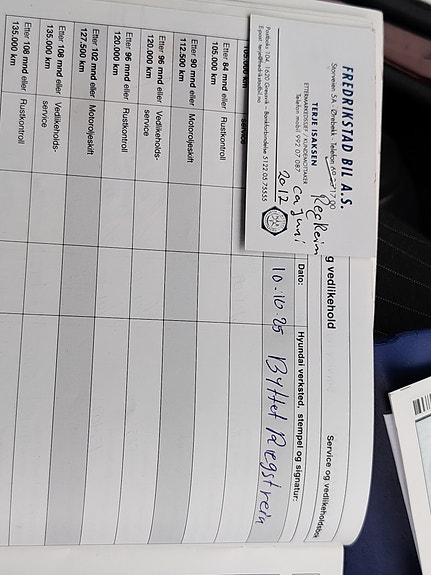 FREDRIKSTAD BIL A.S.
Storveien 5A - Ørebekk - Telefon
TERJE ISAKSEN
ETTERMARKEDSSJEF / KUNDEMOTTAKER
Telefon mobil 992 07 087
Postboks 104, 1620 Gressvik - Bankforbindelse 5122 05 75555
E-post: terje@fredrikstadbil.no
Regreim
ca Juni
2012
g vedlikehold
Service og vedlikeholdsbok
Dato:
Hyundai verksted, stempel og signatur:
105.000 km
service
10.10.25 Byttet Regstreim
Etter 84 mnd eller
105.000 km
Rustkontroll
Etter 90 mnd eller
112.500 km
Motoroljeskift
Etter 96 mnd eller
120.000 km
Vedlikeholds-
service
Etter 96 mnd eller
120.000 km
Rustkontroll
Etter 102 mnd eller
127.500 km
Motoroljeskift
Etter 108 mnd eller
135.000 km
Vedlikeholds-
service
Etter 108 mnd eller
135.000 km
Rustkontroll